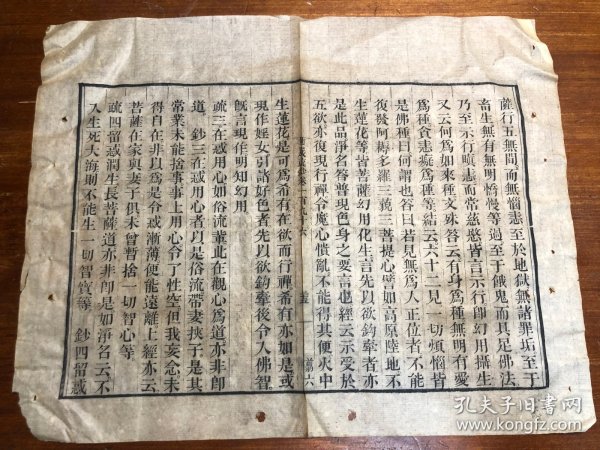 薩行五無間而無惱恚至於地獄無諸罪垢至于
畜生無有無明憍慢等過至于餓鬼而具足佛法
乃至示行瞋恚而常慈愍皆言示行卽幻用攝生
又云何等爲如來種文殊答云有身爲種無明有愛
爲種貪恚癡爲種等結云六十二見一切煩惱皆
是佛種曰何謂也答曰若見無爲入正位者不能
復發阿耨多羅三藐三菩提心譬如高原陸地不
生蓮花等皆菩薩幻用化生言先以欲鉤牽者亦
是此品淨名答普現色身之要言也經云示受於
五欲亦復現行禪令魔心憒亂不能得其便火中
生蓮花是可爲希有在欲而行禪希有亦如是或
現作婬女引諸好色者先以欲鉤牽後令入佛智
旣言現作明知幻用
疏三在惑用心如俗流輩此在觀心爲道亦非卽
道 鈔三在惑用心者以是俗流帶妻挾子是其
常業未能捨事事上用心令了性空但我妄念未
得自在非以爲是令惑漸薄便能遠離上經亦云
菩薩在家與妻子俱未曾暫捨一切智心等
疏四留惑潤生長菩薩道亦非卽是如淨名云不
入生死大海則不能生一切智寶等 鈔四留惑
孔夫子旧书网
www.kongfz.com